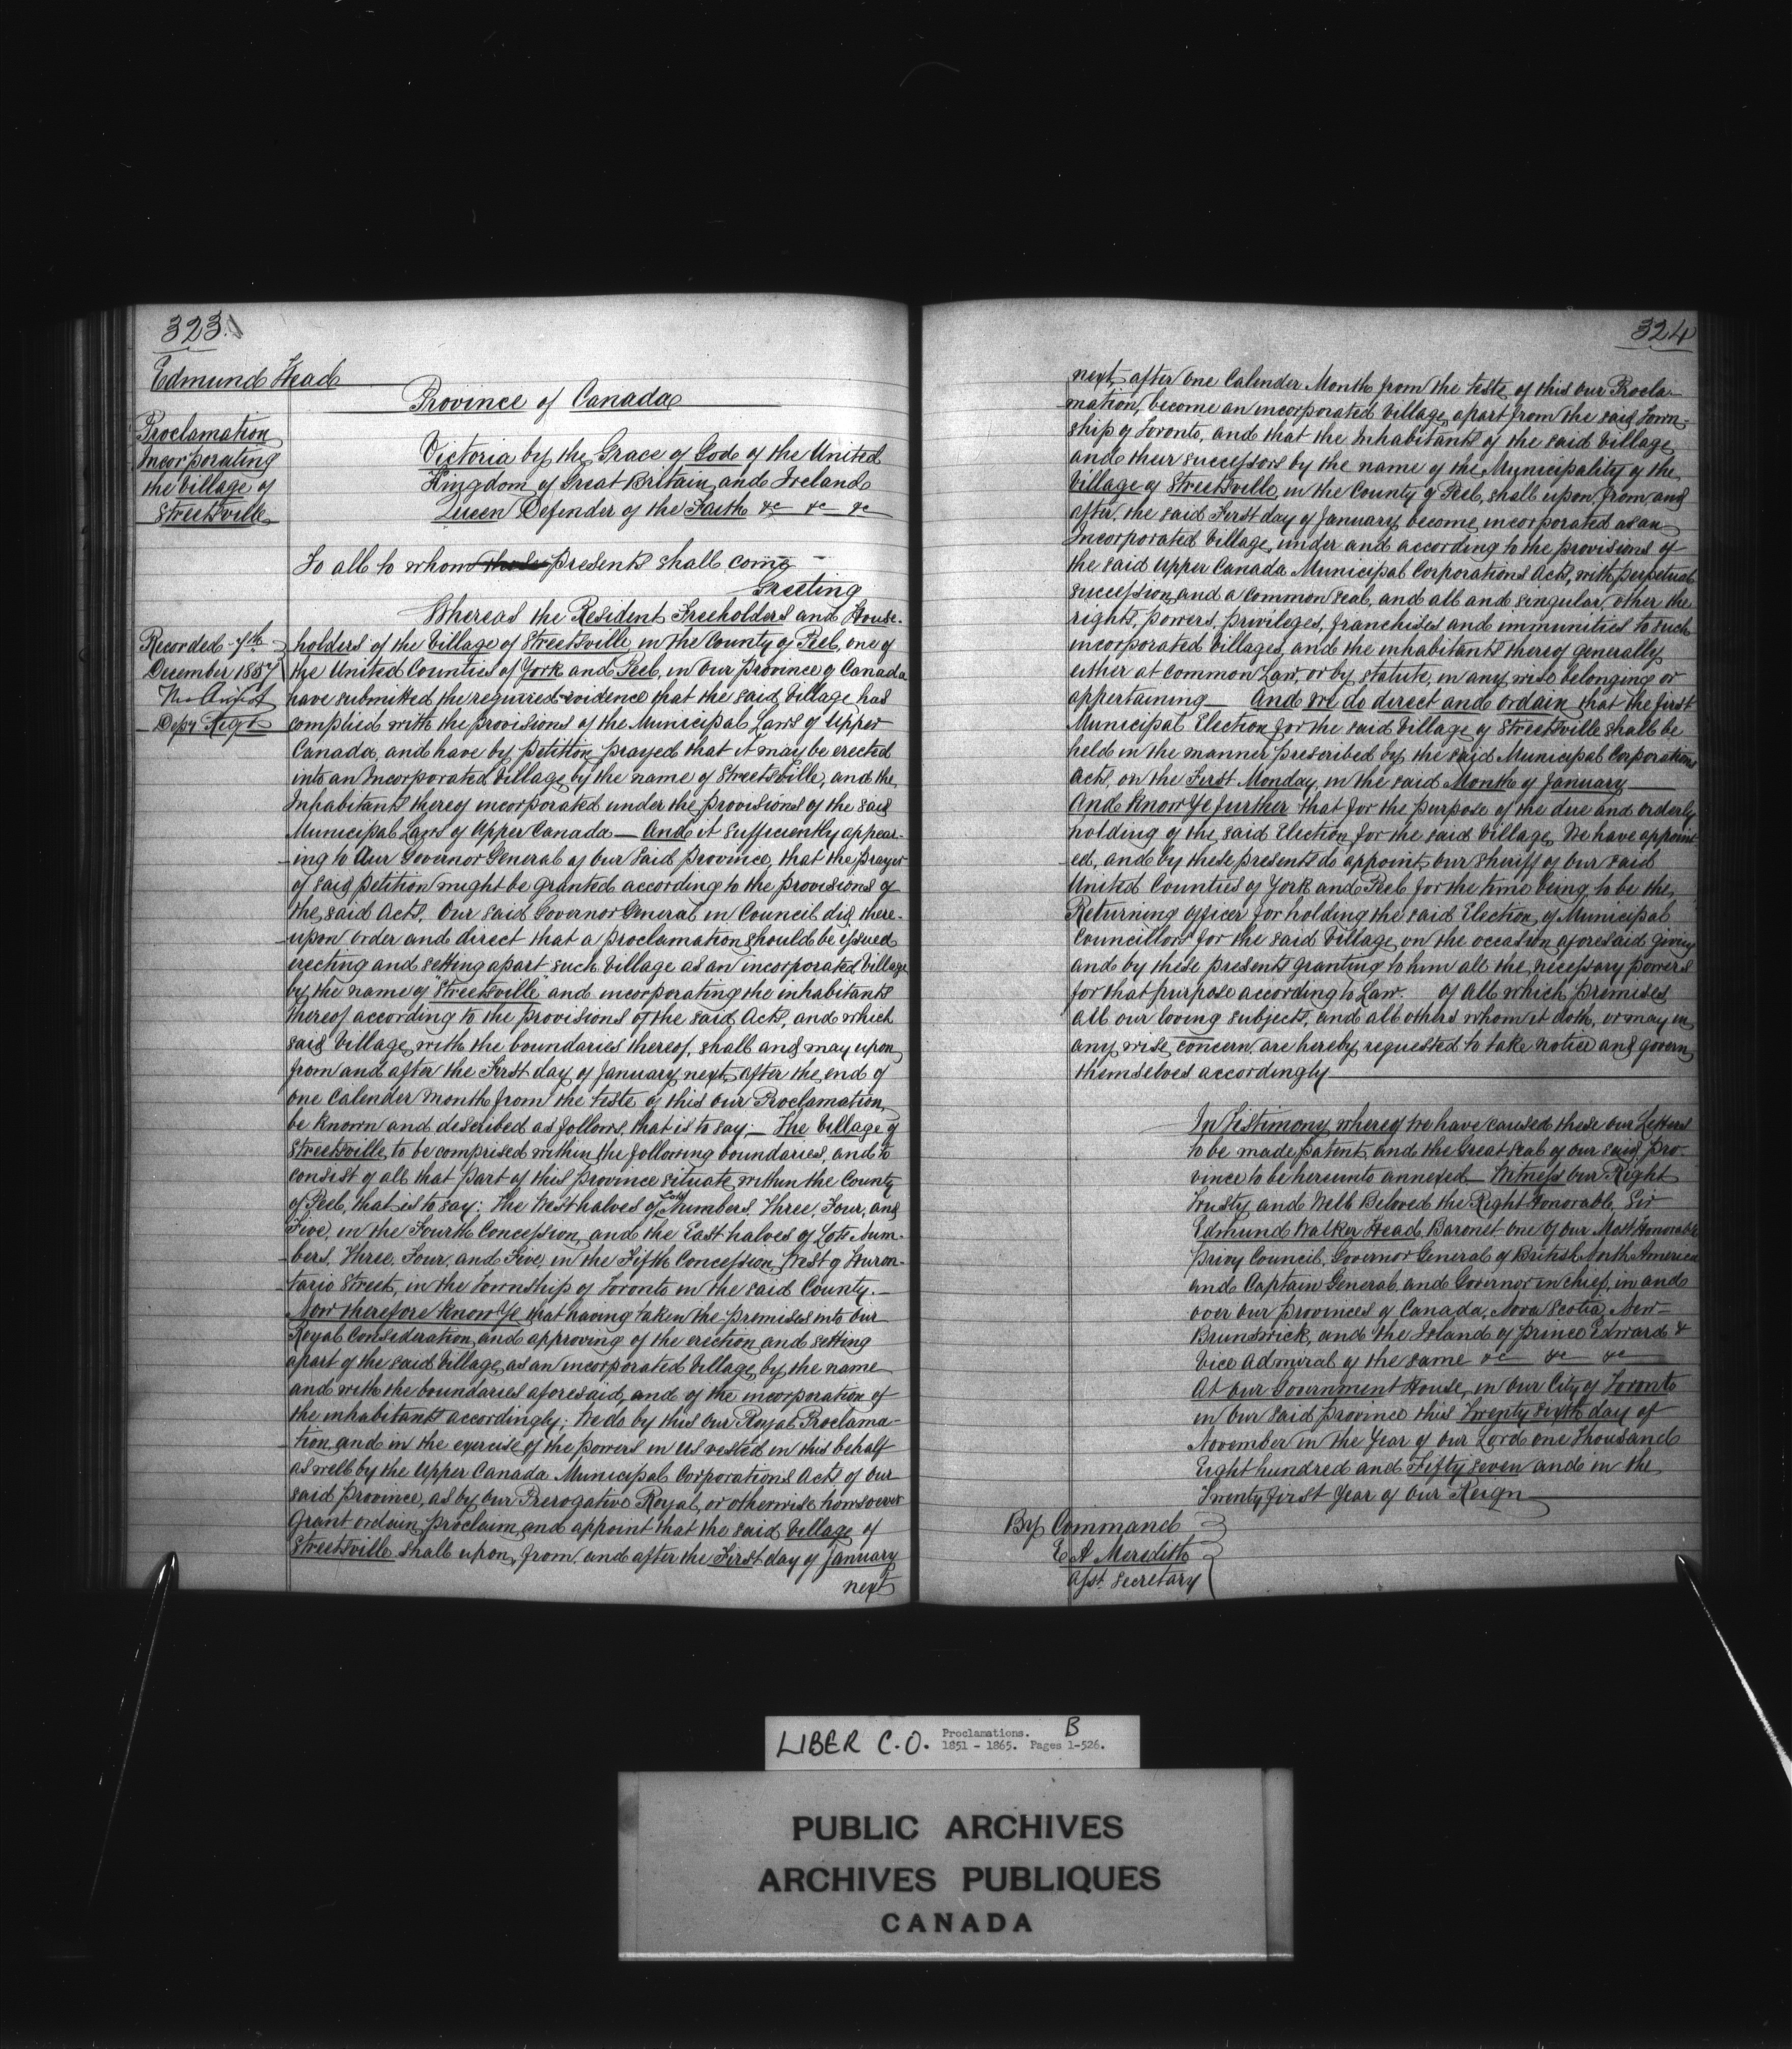 323.
Edmund Head
Province of Canada
Proclamation
Incorporating
the Village of
Streetsville
Victoria by the Grace of God of the United
Kingdom of Great Britain and Ireland
Queen Defender of the Faith &c &c &c
To all to whom these presents shall come
Greeting
Whereas the Resident Freeholders and House-
Recorded 7th
December 1857
Depy Regr
holders of the Village of Streetsville in the County of Peel, one of
the United Counties of York and Peel, in our Province of Canada
have submitted the required evidence that the said Village has
complied with the provisions of the Municipal Laws of Upper
Canada, and have by Petition prayed that it may be erected
into an Incorporated Village by the name of Streetsville, and the
Inhabitants thereof incorporated under the provisions of the said
Municipal Laws of Upper Canada — And it sufficiently appear-
-ing to Our Governor General of our said Province, that the prayer
of said petition might be granted according to the provisions of
the said Acts, Our said Governor General in Council did there-
-upon order and direct that a proclamation should be issued
erecting and setting apart such Village as an incorporated Village
by the name of "Streetsville" and incorporating the inhabitants
thereof according to the provisions of the said Acts, and which
said Village, with the boundaries thereof, shall and may upon,
from and after the First day of January next, after the end of
one Calender Month from the teste of this our Proclamation,
be known and described as follows, that is to say;— The Village of
Streetsville, to be comprised within the following boundaries, and to
consist of all that part of this province situate within the County
of Peel, that is to say; The West halves of Lots Numbers, Three, Four, and
Five, in the Fourth Concession, and the East halves of Lots Num-
-bers, Three, Four, and Five, in the Fifth Concession, West of Huron-
-tario Street, in the Township of Toronto in the said County.—
Now therefore know Ye that having taken the premises into our
Royal Consideration, and approving of the erection and setting
apart of the said Village, as an incorporated Village, by the name
and with the boundaries aforesaid, and of the incorporation of
the inhabitants accordingly; We do by this our Royal Proclama-
-tion, and in the exercise of the powers in us vested in this behalf
as well by the Upper Canada Municipal Corporations Acts of our
said province, as by our Prerogative Royal, or otherwise howsoever
Grant ordain, proclaim, and appoint that the said Village of
Streetsville shall upon, from, and after the First day of January
next
324
next, after one Calender Month from the teste of this our Procla-
mation, become an incorporated Village, apart from the said Town-
ship of Toronto, and that the Inhabitants of the said Village,
and their successors by the name of the Municipality of the
Village of Streetsville, in the County of Peel, shall upon, from, and
after, the said First day of January, become incorporated as an
Incorporated Village, under and according to the provisions of
the said Upper Canada Municipal Corporations Acts, with perpetual
succession, and a common seal, and all and singular, other the
rights, powers, privileges, franchises and immunities to such
incorporated Villages, and the inhabitants thereof generally
either at common Law, or by statute, in any wise belonging or
appertaining — And we do direct and ordain that the first
Municipal Election for the said Village of Streetsville shall be
held in the manner prescribed by the said Municipal Corporations
Acts, on the First Monday, in the said Month of January
And know Ye further that for the purpose of the due and orderly
holding of the said Election for the said Village, We have appoint
-ed, and by these presents do appoint our Sheriff of our said
United Counties of York and Peel for the time being, to be the
Returning Officer for holding the said Election, of Municipal
Councillors for the said Village, on the occasion aforesaid giving
and by these presents granting to him all the necessary powers
for that purpose according to Law. Of all which premises
all our loving subjects, and all others whom it doth, or may in
any wise, concern, are hereby requested to take notice and govern
themselves accordingly
In Testimony whereof we have caused these our Letters
to be made Patent and the Great Seal of our said pro-
vince to be hereunto annexed — Witness Our Right
Trusty and Well Beloved the Right Honorable Sir
Edmund Walker Head, Baronet one Of our Most Honorable
Privy Council, Governor General of British North America
and Captain General, and Governor in Chief, in and
over our provinces of Canada, Nova Scotia, New-
Brunswick, and the Island of Prince Edward &
Vice Admiral of the same &c &c &c
At our Government House, in our City of Toronto
in our said province this Twenty sixth day of
November in the Year of our Lord one thousand
Eight hundred and Fifty seven and in the
Twenty first Year of Our Reign
By Command
E A Meredith
Asst. Secretary
LIBER C.O. Proclamations. B
1851 - 1865. Pages 1-526.
PUBLIC ARCHIVES
ARCHIVES PUBLIQUES
CANADA